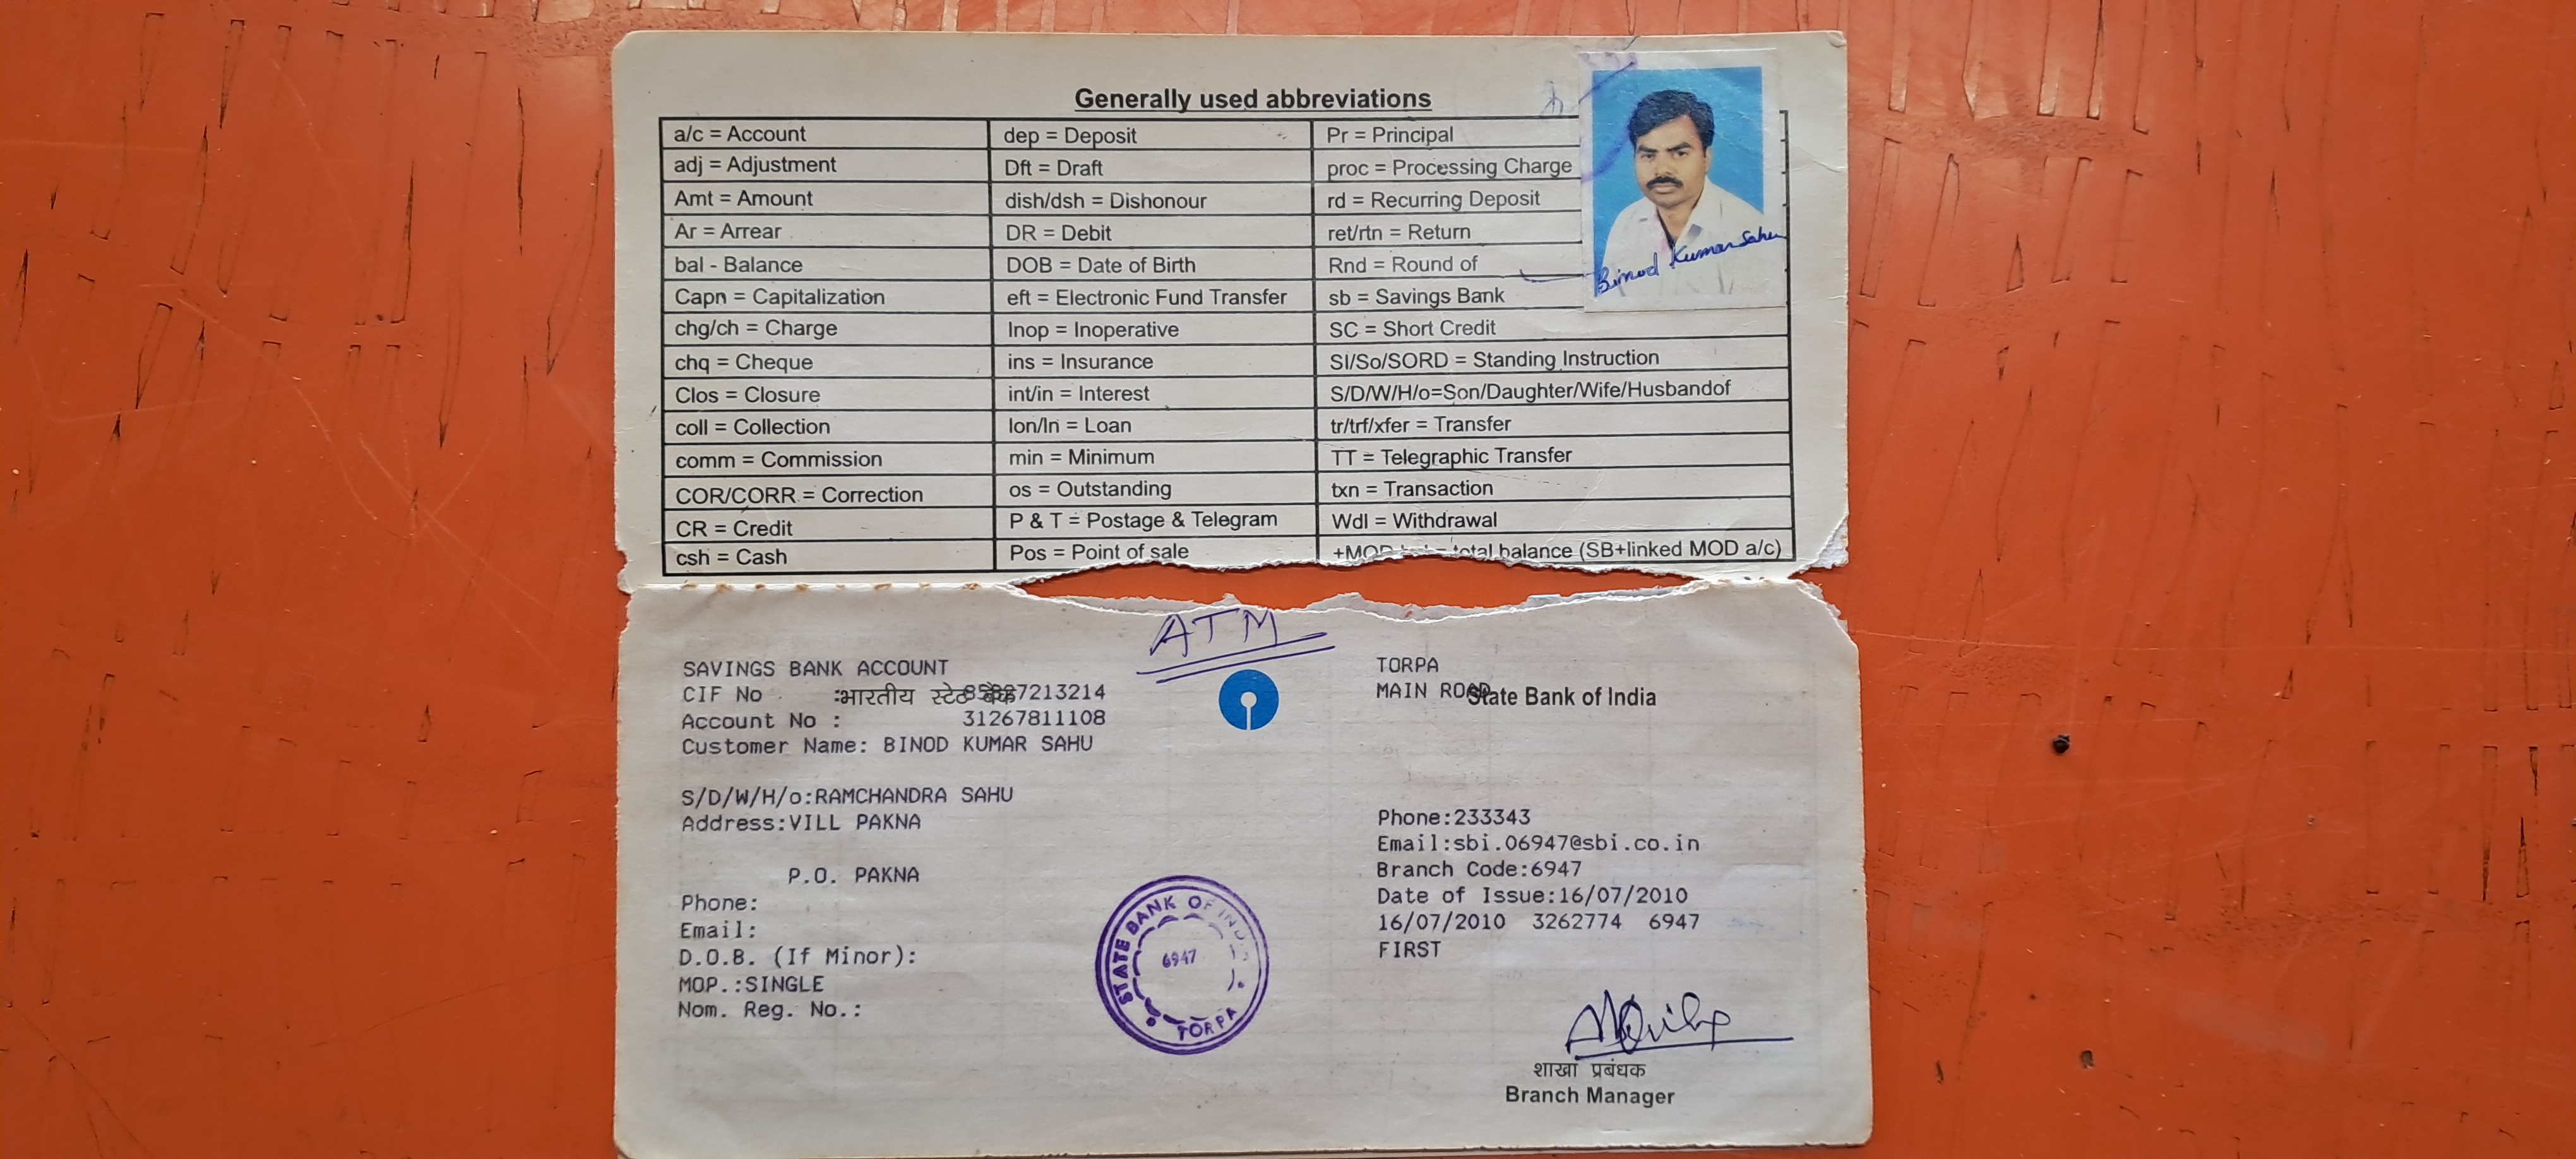 Generally used abbreviations
a/c = Account
adj = Adjustment
Amt = Amount
Ar = Arrear
bal - Balance
Capn = Capitalization
chg/ch = Charge
chq = Cheque
Clos = Closure
coll = Collection
comm = Commission
COR/CORR = Correction
CR = Credit
csh = Cash
dep = Deposit
Dft = Draft
dish/dsh = Dishonour
DR = Debit
DOB = Date of Birth
eft = Electronic Fund Transfer
Inop = Inoperative
ins = Insurance
int/in = Interest
lon/ln = Loan
min = Minimum
os = Outstanding
P & T = Postage & Telegram
Pos = Point of sale
Pr = Principal
proc = Processing Charge
rd = Recurring Deposit
ret/rtn = Return
Rnd = Round of
sb = Savings Bank
SC = Short Credit
SI/So/SORD = Standing Instruction
S/D/W/H/o=Son/Daughter/Wife/Husbandof
tr/trf/xfer = Transfer
TT = Telegraphic Transfer
txn = Transaction
Wdl = Withdrawal
total balance (SB+linked MOD a/c)
Binod Kumar Sahu
ATM
SAVINGS BANK ACCOUNT
CIF No :
भारतीय स्टेट बैंक
Account No : 31267811108
Customer Name: BINOD KUMAR SAHU
S/D/W/H/o:RAMCHANDRA SAHU
Address:VILL PAKNA
P.O. PAKNA
Phone:
Email:
D.O.B. (If Minor):
MOP.:SINGLE
Nom. Reg. No.:
STATE BANK OF INDIA
6947
TORPA
TORPA
MAIN ROAD
State Bank of India
Phone:233343
Email:sbi.06947@sbi.co.in
Branch Code:6947
Date of Issue:16/07/2010
16/07/2010 3262774 6947
FIRST
शाखा प्रबंधक
Branch Manager